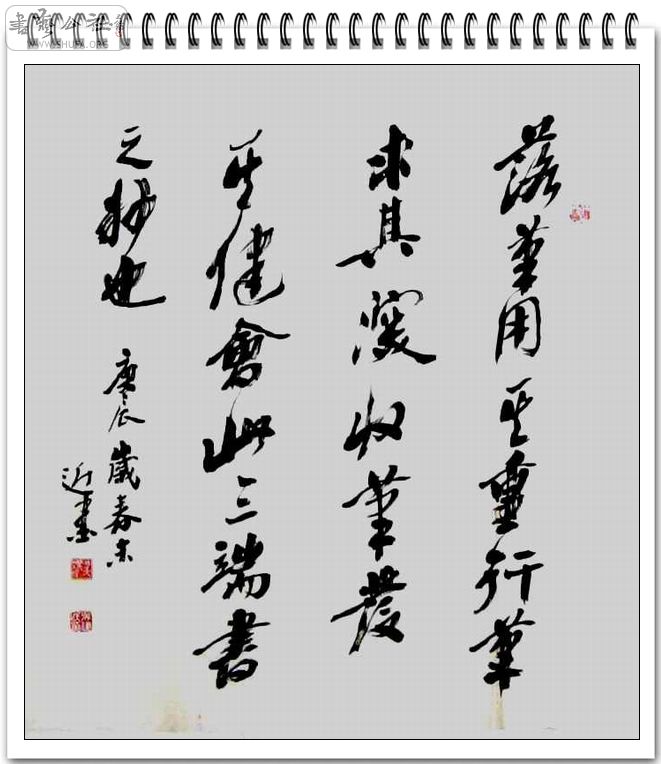 落筆用其重行筆
求其澀收筆發
其健會此三端書
之妙也
庚辰歲春末
近墨
WWW.SHUFA.ORG